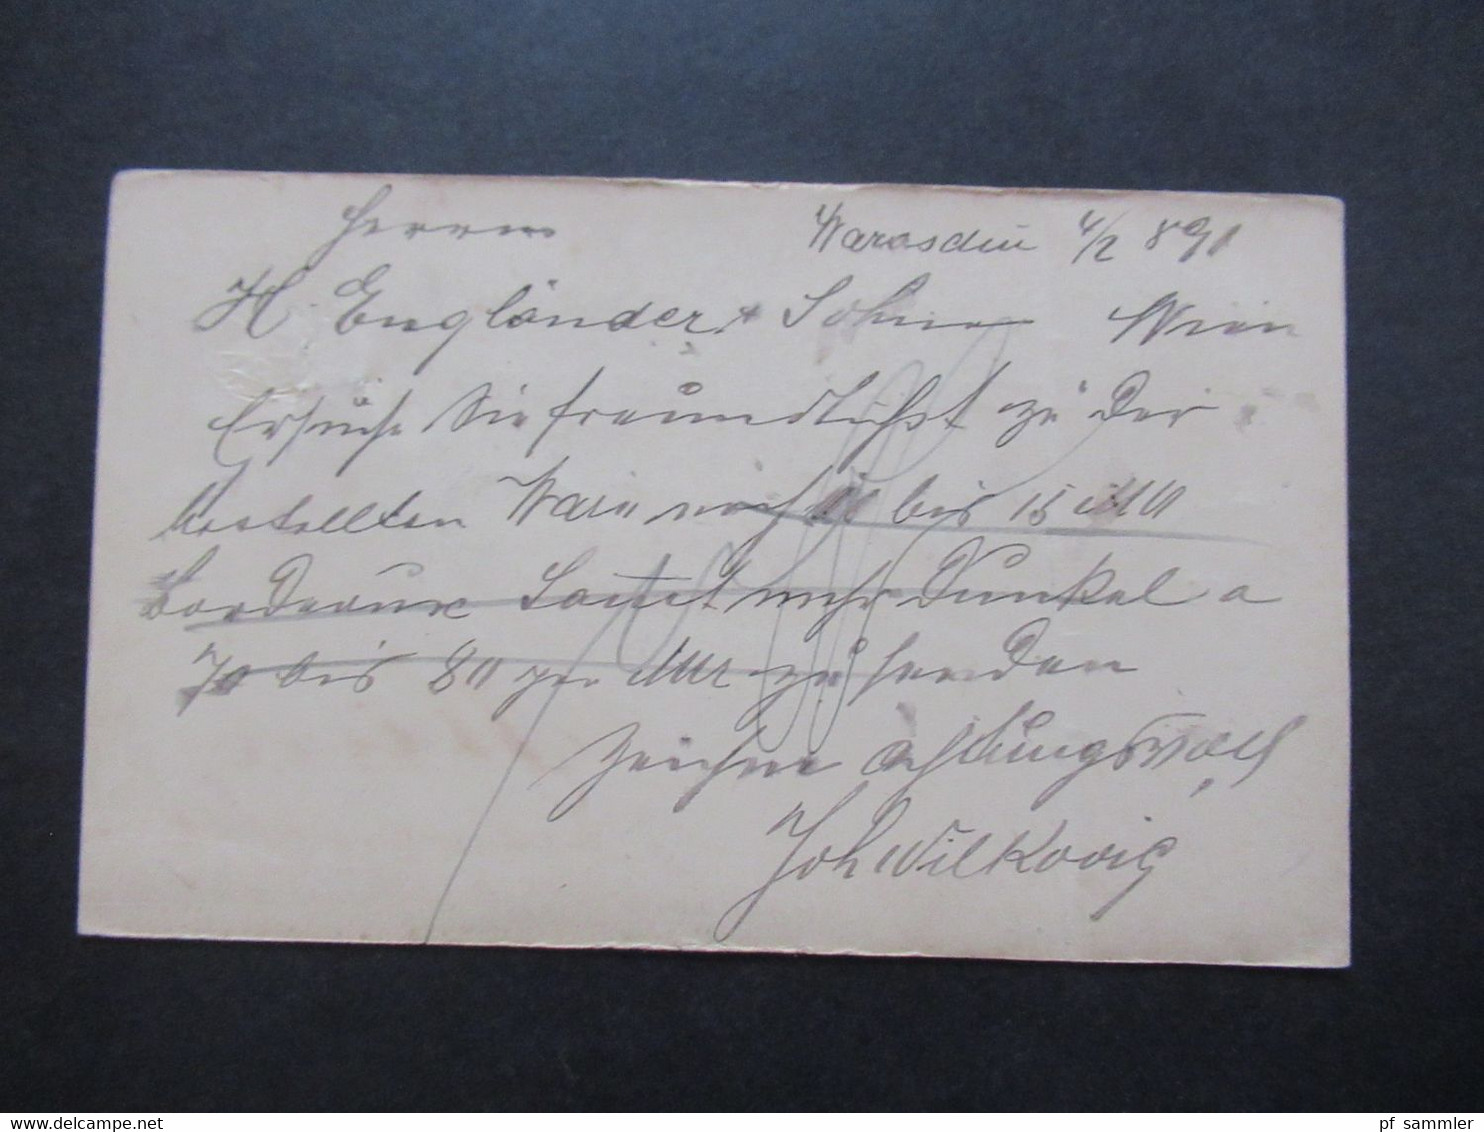 Herrn Warasdin 4/2 891
H. Engländer & Söhne Wien
Ersuche Sie freundlichst zu der
bestellten Ware noch 10 bis 15 Mtr
Bordeaux Samt mehr Dunkel a
70 bis 80 per Mtr zu senden
Zeichne achtungsvoll
Joh Wilkovig
www.delcampe.net
pf_sammler